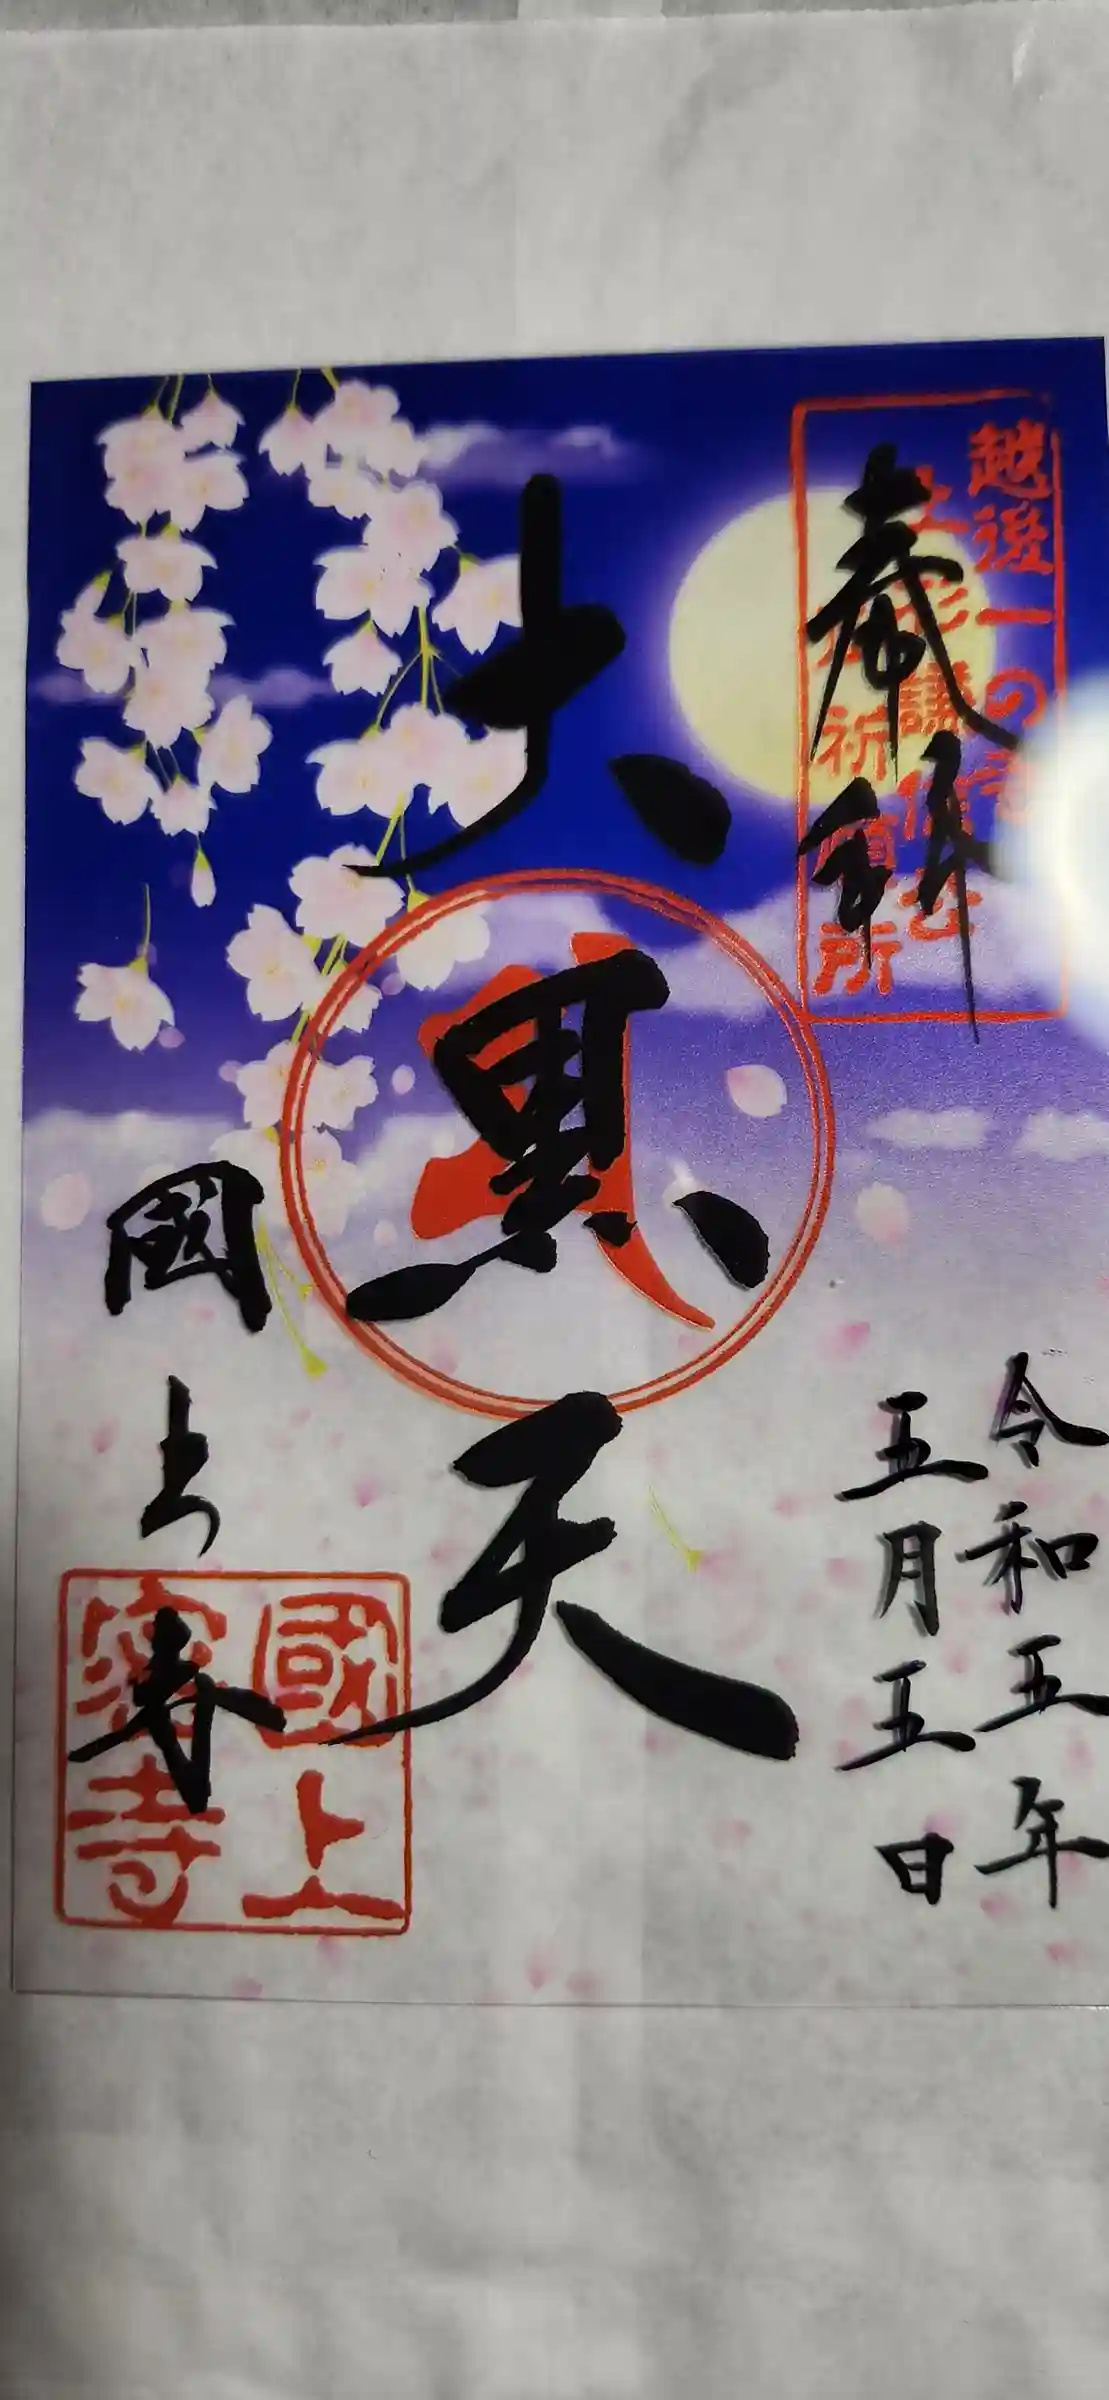 奉拝
越後一の古寺
上杉謙信公
祈願所
大黒天
令和五年
五月五日
國上寺
國上
寺